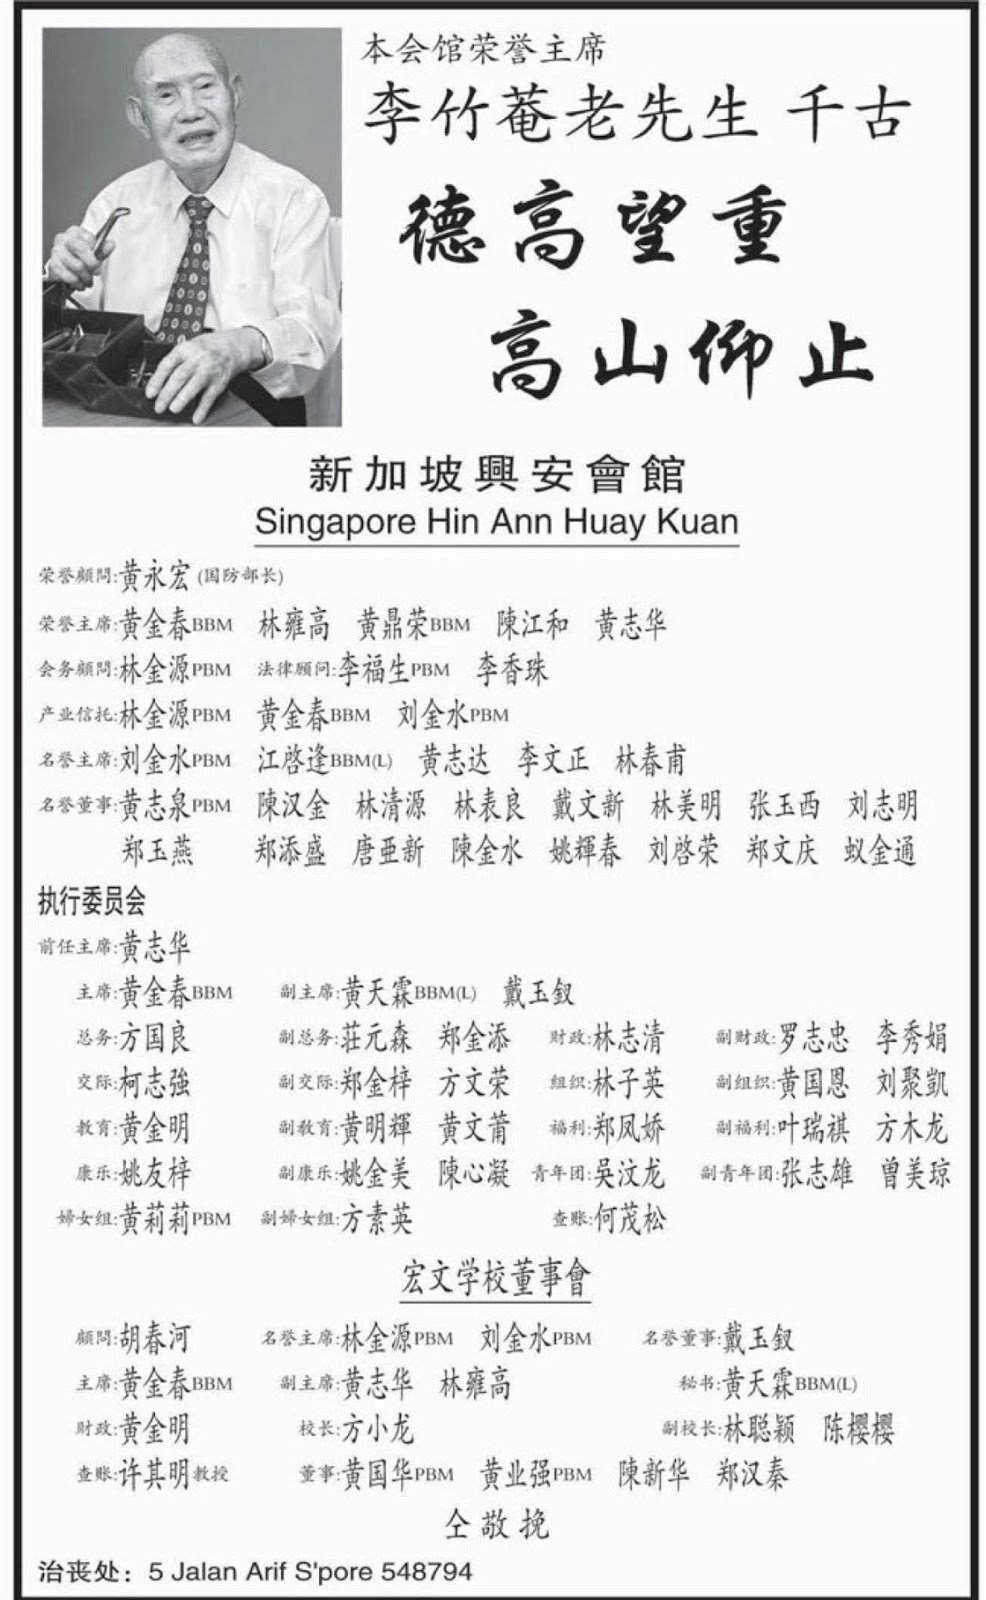 本会馆荣誉主席
李竹菴老先生 千古
德高望重
高山仰止
新加坡興安會館
Singapore Hin Ann Huay Kuan
荣誉顧問:黄永宏 (国防部长)
荣誉主席:黄金春BBM 林雍高 黄鼎荣BBM 陳江和 黄志华
会务顧問:林金源PBM 法律顾问:李福生PBM 李香珠
产业信托:林金源PBM 黄金春BBM 刘金水PBM
名誉主席:刘金水PBM 江啓逢BBM(L) 黄志达 李文正 林春甫
名誉董事:黄志泉PBM 陳汉金 林清源 林表良 戴文新 林美明 张玉西 刘志明
郑玉燕 郑添盛 唐亜新 陳金水 姚輝春 刘啓荣 郑文庆 蚁金通
执行委员会
前任主席:黄志华
主席:黄金春BBM 副主席:黄天霖BBM(L) 戴玉釵
总务:方国良 副总务:莊元森 郑金添 财政:林志清 副财政:罗志忠 李秀娟
交际:柯志強 副交际:郑金梓 方文荣 组织:林子英 副组织:黄国恩 刘聚凱
教育:黄金明 副教育:黄明輝 黄文莆 福利:郑凤娇 副福利:叶瑞祺 方木龙
康乐:姚友梓 副康乐:姚金美 陳心凝 青年团:吳汶龙 副青年团:张志雄 曾美琼
婦女组:黄莉莉PBM 副婦女组:方素英 查账:何茂松
宏文学校董事會
顧問:胡春河 名誉主席:林金源PBM 刘金水PBM 名誉董事:戴玉釵
主席:黄金春BBM 副主席:黄志华 林雍高 秘书:黄天霖BBM(L)
财政:黄金明 校长:方小龙 副校长:林聪颖 陈樱樱
查账:许其明教授 董事:黄国华PBM 黄业强PBM 陳新华 郑汉秦
仝敬挽
治丧处：5 Jalan Arif S'pore 548794